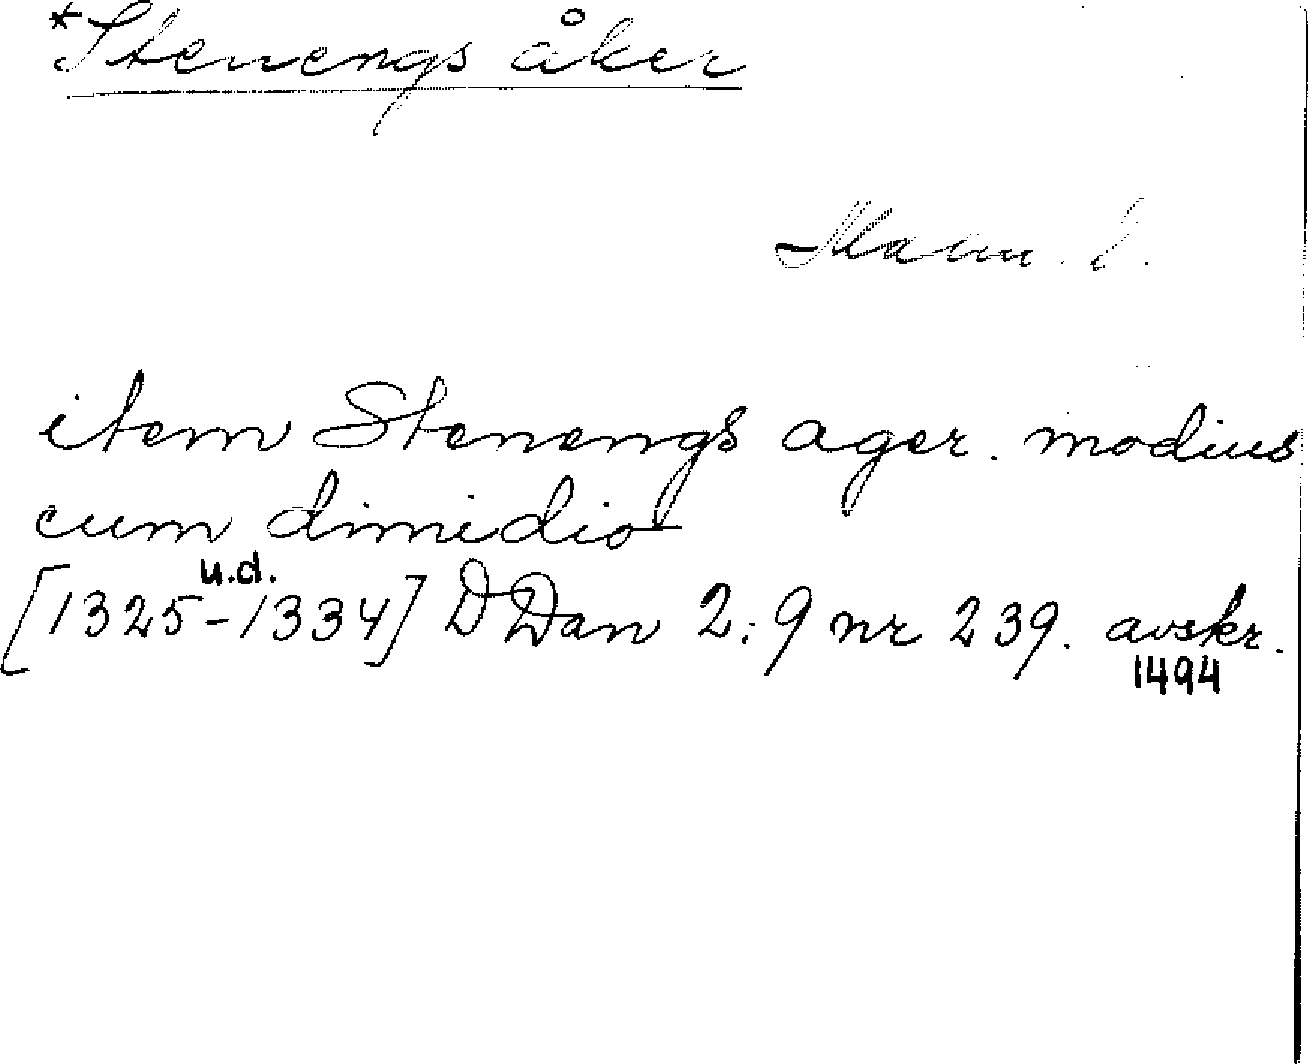 *Stenengs åker
Skam. l.
item Stenengs ager. modius
cum dimidio
u.d.
[1325-1334] DDan 2:9 nr 239. avskr.
1494